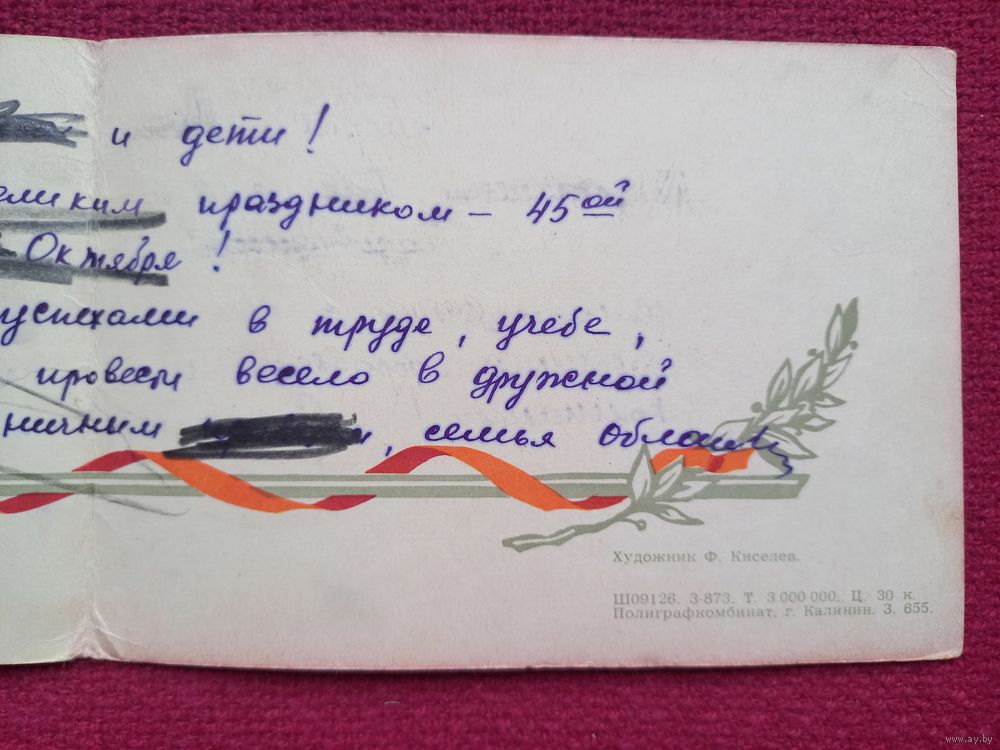 и дети!
еликим праздником - 45ой
Октября!
успехами в труде, учебе,
провести весело в дружной
ничным , семья
Художник Ф. Киселев.
Ш09126. 3-873. Т. 3 000 000. Ц. 30 к.
Полиграфкомбинат, г. Калинин. З. 655.
www.ay.by